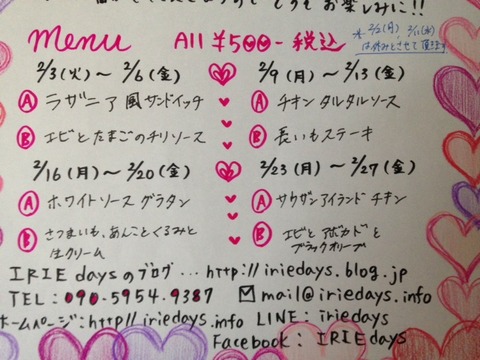 とてもお楽しみに!!
menu All ¥500- 税込
※2/2(月)、2/11(水)
はお休みとさせて頂きます
2/3(火)〜2/6(金) 2/9(月)〜2/13(金)
Ⓐ ラザニア風サンドイッチ Ⓐ チキンタルタルソース
Ⓑ エビとたまごのチリソース Ⓑ 長いもステーキ
2/16(月)〜2/20(金) 2/23(月)〜2/27(金)
Ⓐ ホワイトソースグラタン Ⓐ サウザンアイランドチキン
Ⓑ さつまいも、あんことくるみと Ⓑ エビとアボカドと
生クリーム ブラックオリーブ
IRIE daysのブログ...http://iriedays.blog.jp
TEL:090-5954-9387 mail@iriedays.info
ホームページ:http://iriedays.info LINE:iriedays
Facebook:IRIEdays